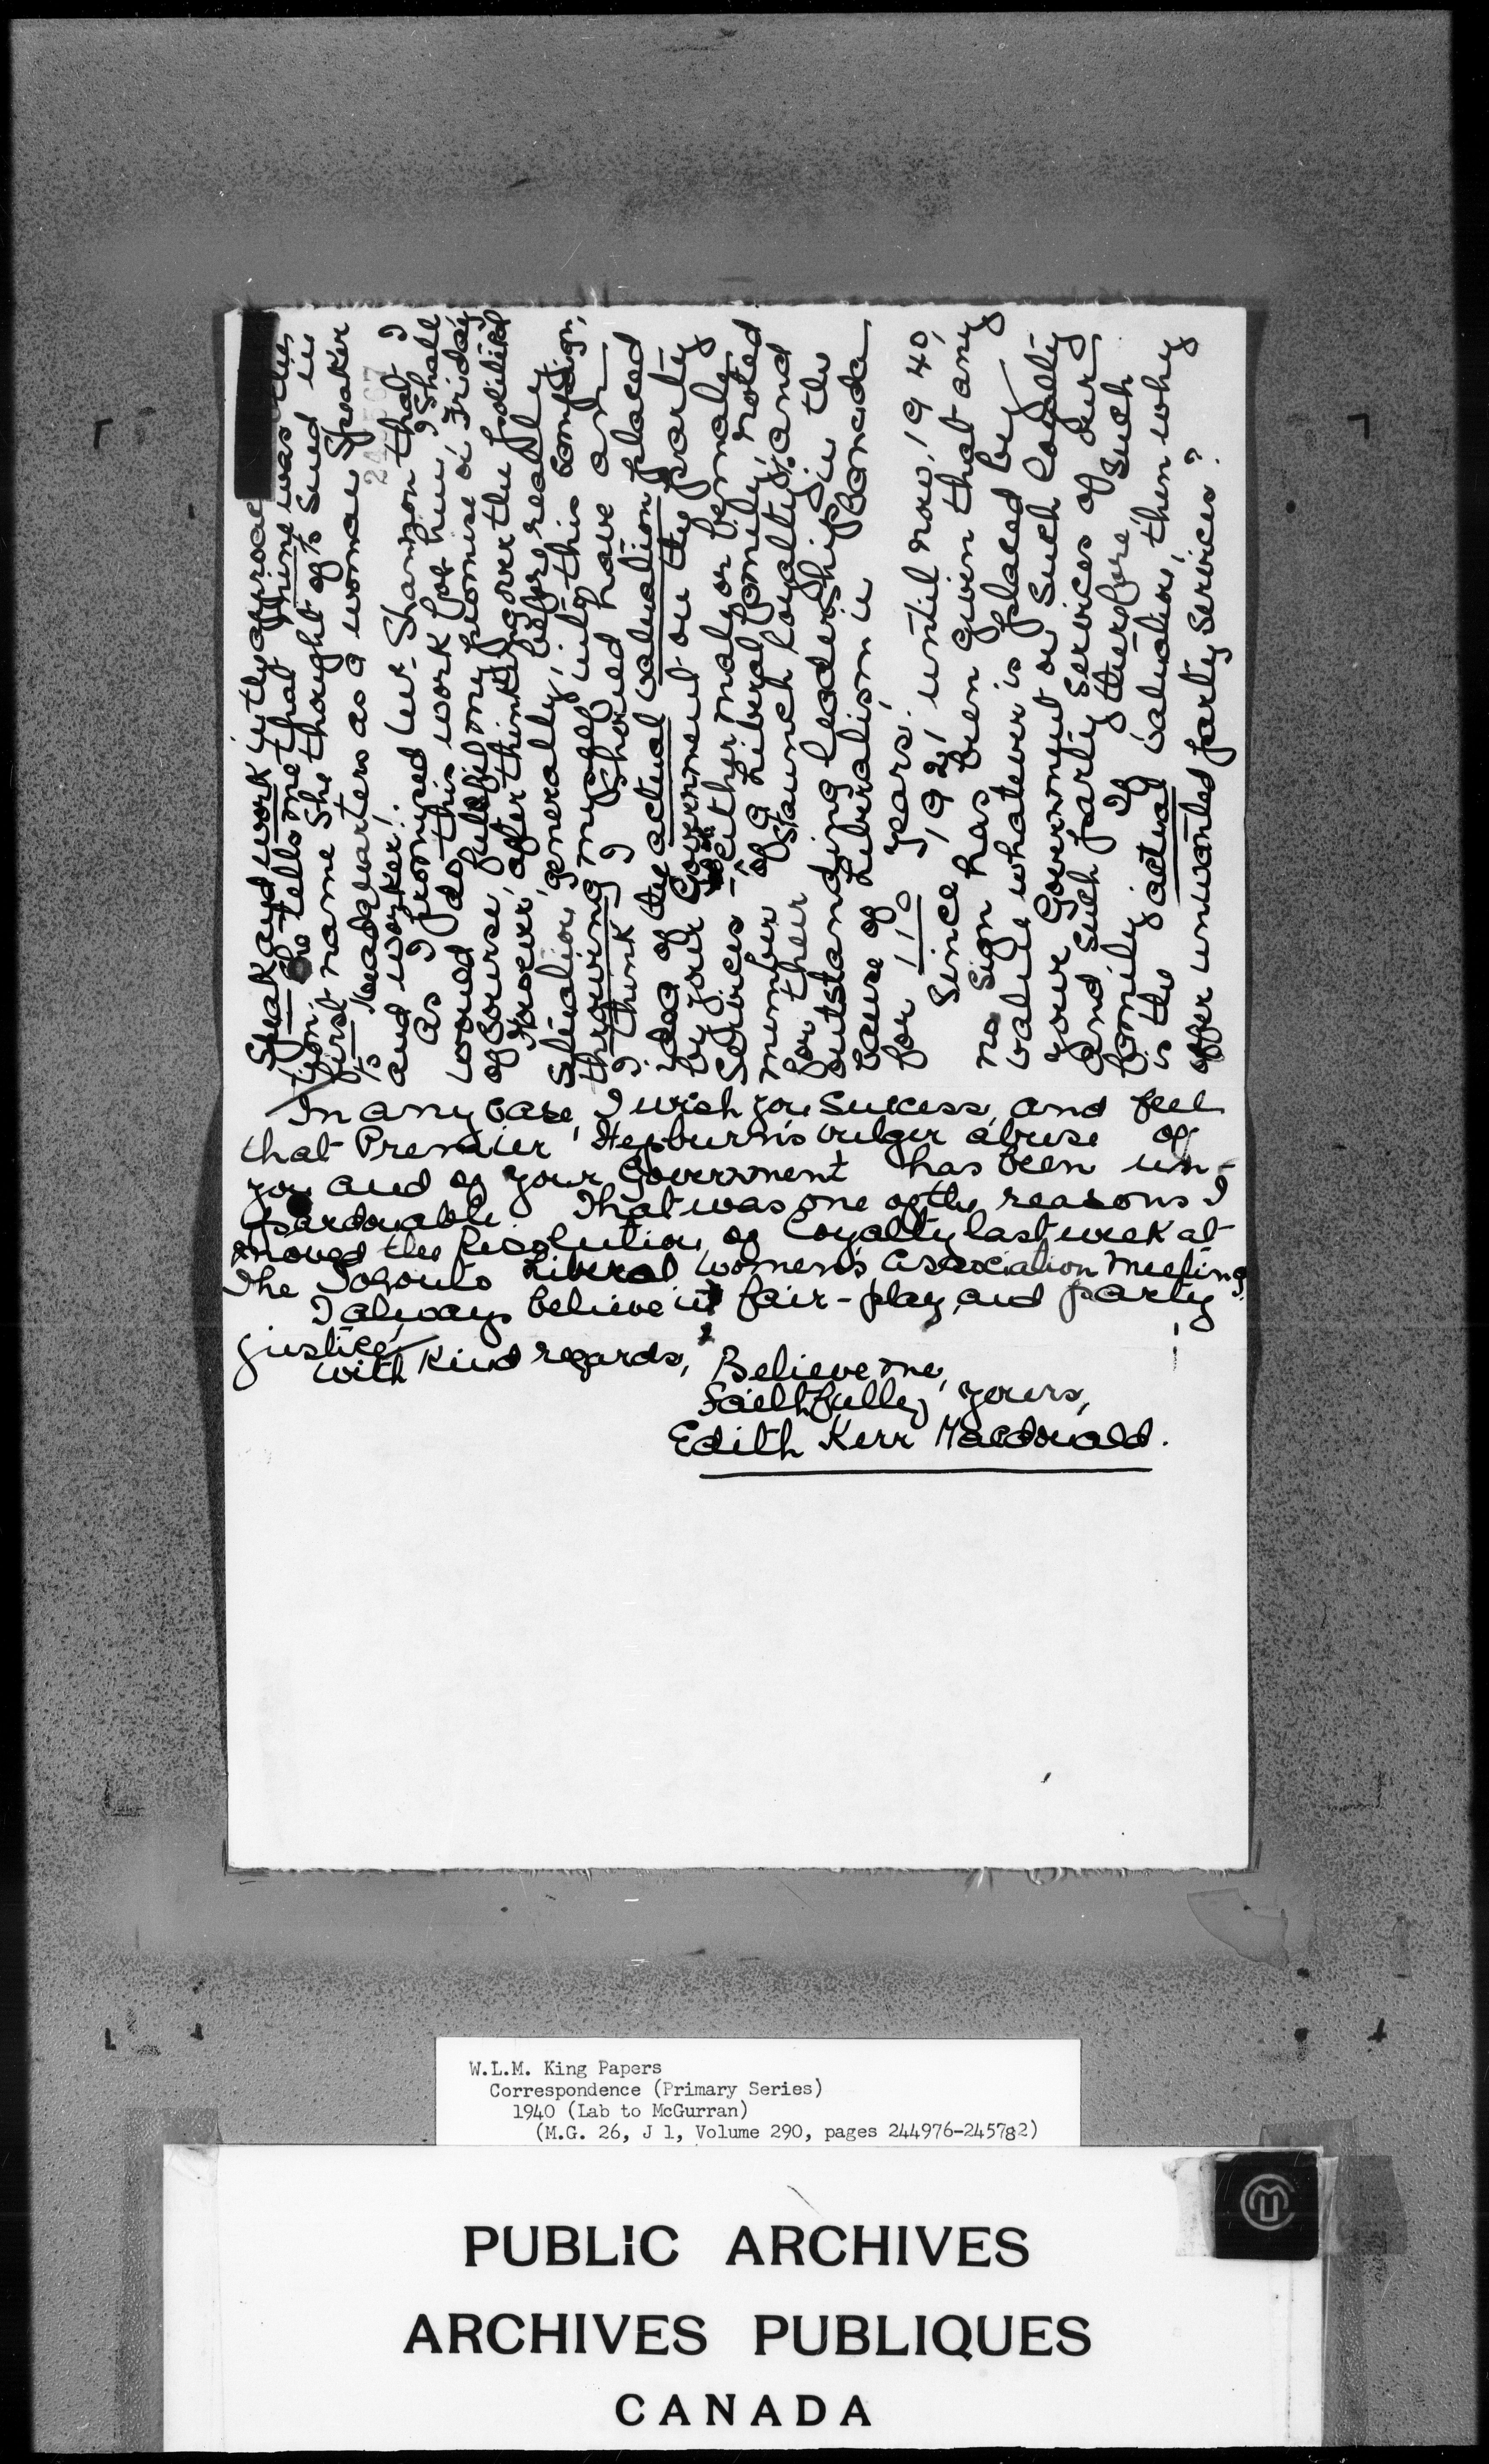 Speak and work in the approval
tion. She tells me that mine was the
first name she thought of to send in
to headquarters as a woman speaker
and worker!
As I promised Mr. Shannon that I
would do this work for him, I shall
of course, fulfil my promise on Friday.
However, after thinking over the political
situation generally, before really
throwing myself into this campaign,
I think I should have an
idea of the actual valuation placed
by your Government on the party
services — either male or female,
member of a Liberal family, noted
for their staunch loyalty and
outstanding leadership in the
cause of Liberalism in Canada
for 110 years.
Since 1921, until now, 1940,
no sign has been given that any
value whatever is placed by
your Government on such loyalty
and such party services of our
family. If therefore such
is the actual valuation, then why
offer unwanted party services?
In any case, I wish you success, and feel
that Premier Hepburn's vulger abuse of
you and of your Government has been un-
pardonable. That was one of the reasons I
moved the Resolution of Loyalty last week at
the Toronto Liberal Women's Association meeting.
I always believe in fair-play and party
justice,
with kind regards, Believe me,
Faithfully yours,
Edith Kerr Macdonald.
W.L.M. King Papers
Correspondence (Primary Series)
1940 (Lab to McGurran)
(M.G. 26, J 1, Volume 290, pages 244976-245782)
PUBLIC ARCHIVES
ARCHIVES PUBLIQUES
CANADA